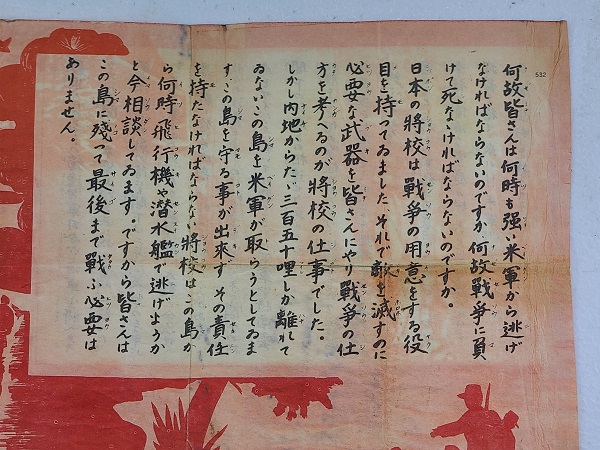 532
何故皆さんは何時も強い米軍から逃げ
なければならないのですか何故戦争に負
けて死なゝければならないのですか。
日本の將校は戰爭の用意をする役
目を持ってゐました それで敵を滅すのに
必要な武器を皆さんにやり戰爭の仕
方を考へるのが將校の仕事でした。
しかし内地からたゞ三百五十哩しか離れて
ゐないこの島を米軍が取らうとしてゐま
す、この島を守る事が出來す その責任
を持たなければならない將校はこの島か
ら何時飛行機や潜水艦で逃げようか
と今相談してゐます。ですから皆さんは
この島に殘って最後まで戰ふ必要は
ありません。